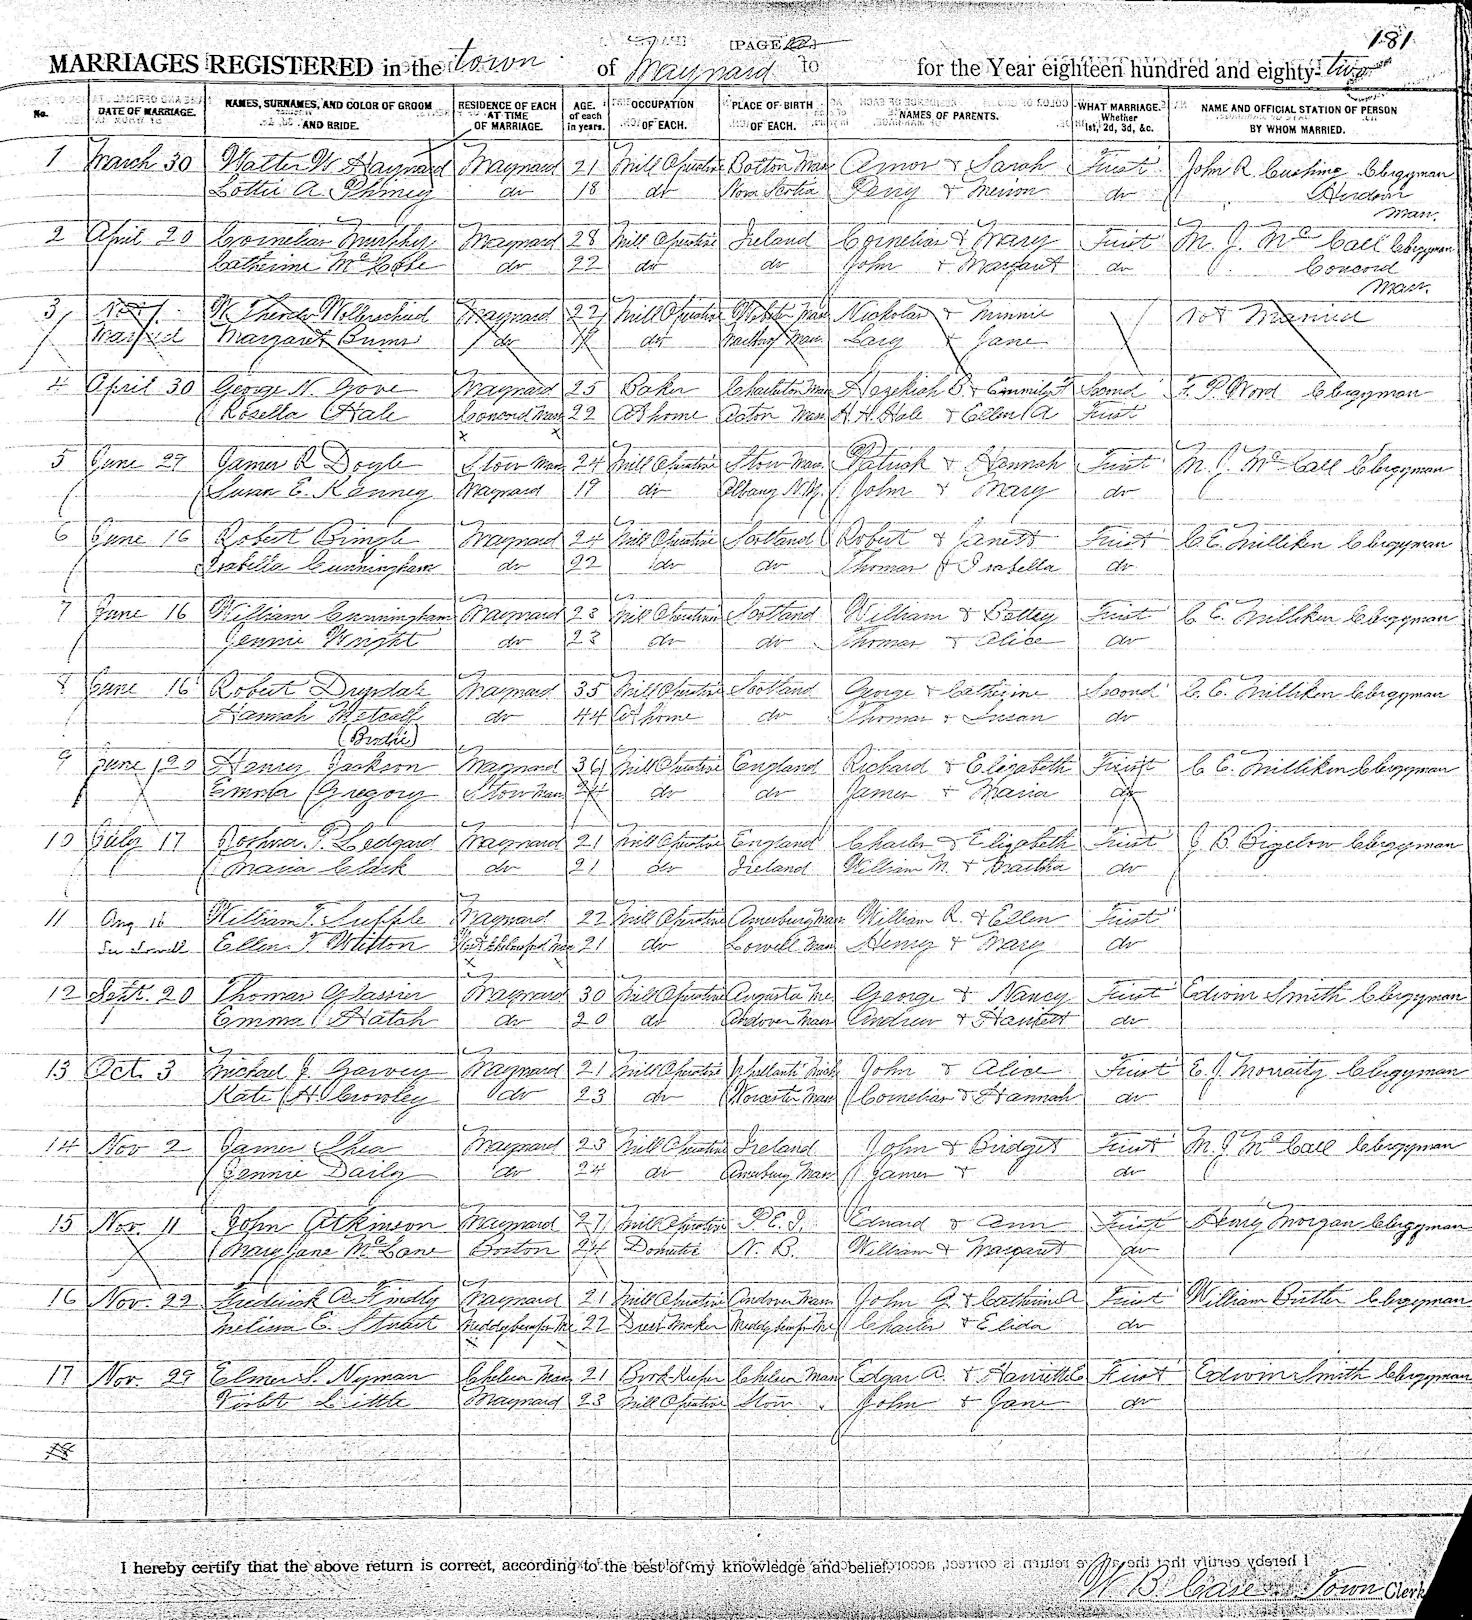 181
[PAGE 12.]
MARRIAGES REGISTERED in the town of Maynard to for the Year eighteen hundred and eighty-two
No. DATE OF MARRIAGE. NAMES, SURNAMES, AND COLOR OF GROOM AND BRIDE. RESIDENCE OF EACH AT TIME OF MARRIAGE. AGE. of each in years. OCCUPATION OF EACH. PLACE OF BIRTH OF EACH. NAMES OF PARENTS. WHAT MARRIAGE. Whether 1st, 2d, 3d, &c. NAME AND OFFICIAL STATION OF PERSON BY WHOM MARRIED.
1 March 30 Walter W Haynard Maynard 21 Mill Operative Bolton Mass Amos & Sarah First John R. Cushing Clergyman
Lottie A Phiney do 18 do Nova Scotia Perry & do Hudson
Mass.
2 April 20 Cornelius Murphy Maynard 28 Mill Operative Ireland Cornelius & Mary First M. J. McCall Clergyman
Catherine McCabe do 22 do do John & Margaret do Concord
Mass.
3 Not W. Maynard 22 Mill Operative Webster Mass Nicholas & Minnie Not Married
Married Margaret Burns do do Mass. & Jane
4 April 30 George N. Gove Maynard 25 Baker Mass Hezekiah B & Emmily F Second F. P. Word Clergyman
Rosella Hale Concord Mass 22 At home Acton Mass H. H. Hale & Ellen A First
x x
5 June 29 James R Doyle Stow Mass 24 Mill Operative Stow Mass. Patrick & Hannah First M. J. McCall Clergyman
Susan E. Kenney Maynard 19 do Albany N.Y. John & Mary do
6 June 16 Robert Bingle Maynard 24 Mill Operative Scotland Robert & Janett First C. E. Milliken Clergyman
Isabella Cunningham do 22 do do Thomas & Isabella do
7 June 16 William Cunningham Maynard 23 Mill Operative Scotland William & Betley First C. E. Milliken Clergyman
Jennie Wright do 23 do do Thomas & Alice do
8 June 16 Robert Drysdale Maynard 35 Mill Operative Scotland George & Catherine Second C. E. Milliken Clergyman
Hannah Metcalf do 44 At home do Thomas & Susan do
(Brodie)
9 June 20 Henry Jackson Maynard 36 Mill Operative England Richard & Elizabeth First C. E. Milliken Clergyman
Emma Gregory Stow Mass 24 do do James & Maria do
10 July 17 Joshua P. Ledgard Maynard 21 Mill Operative England Charles & Elizabeth First J. B. Bigelow Clergyman
Maria Clark do 21 do Ireland William M. & Martha do
11 Aug 16 William T. Supple Maynard 22 Mill Operative Amesbury Mass William R. & Ellen First
See Lowell Ellen T Whitton West Chelmsford Mass 21 do Lowell Mass Henry & Mary do
x x
12 Sept. 20 Thomas Glassier Maynard 30 Mill Operative Augusta Me. George & Nancy First Edwin Smith Clergyman
Emma Hatch do 20 do Andover Mass Andrew & do
13 Oct. 3 Michael J. Garvey Maynard 21 Mill Operative Mich John & Alice First E. J. Morraity Clergyman
Kate H Crowley do 23 do Worcester Mass Cornelius & Hannah do
14 Nov 2 James Shea Maynard 23 Mill Operative Ireland John & Bridget First M. J. McCall Clergyman
Jennie Daily do 24 do Amesbury Mass James & do
15 Nov. 11 John Atkinson Maynard 27 Mill Operative P. E. I. Edward & Ann First Henry Morgan Clergyman
Mary Jane McLane Boston 24 Domestic N. B. William & Margaret do
16 Nov. 22 Frederick A. Findly Maynard 21 Mill Operative Andover Mass John G. & Catherine A First William Butler Clergyman
Melissa E. Stuart Meddybemps Me 22 Dress Maker Meddybemps Me Charles & Elida do
x x
17 Nov. 29 Elmer S. Nyman Chelsea Mass 21 Book Keeper Chelsea Mass Edgar A. & Harriett E First Edwin Smith Clergyman
Violet Little Maynard 23 Mill Operative Stow John & Jane do
18
I hereby certify that the above return is correct, according to the best of my knowledge and belief.
W B Case Town Clerk